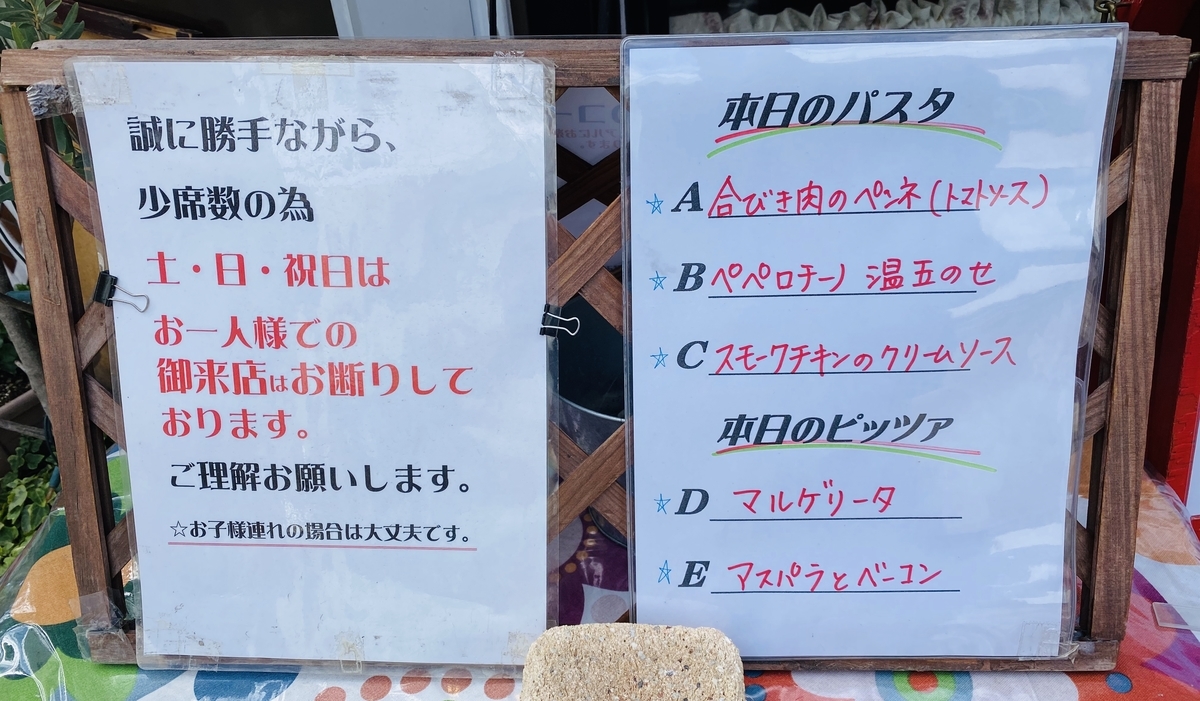 誠に勝手ながら、
少席数の為
土・日・祝日は
お一人様での
御来店はお断りして
おります。
ご理解お願いします。
☆お子様連れの場合は大丈夫です。
本日のパスタ
☆A 合びき肉のペンネ(トマトソース)
☆B ペペロチーノ 温玉のせ
☆C スモークチキンのクリームソース
本日のピッツァ
☆D マルゲリータ
☆E アスパラとベーコン